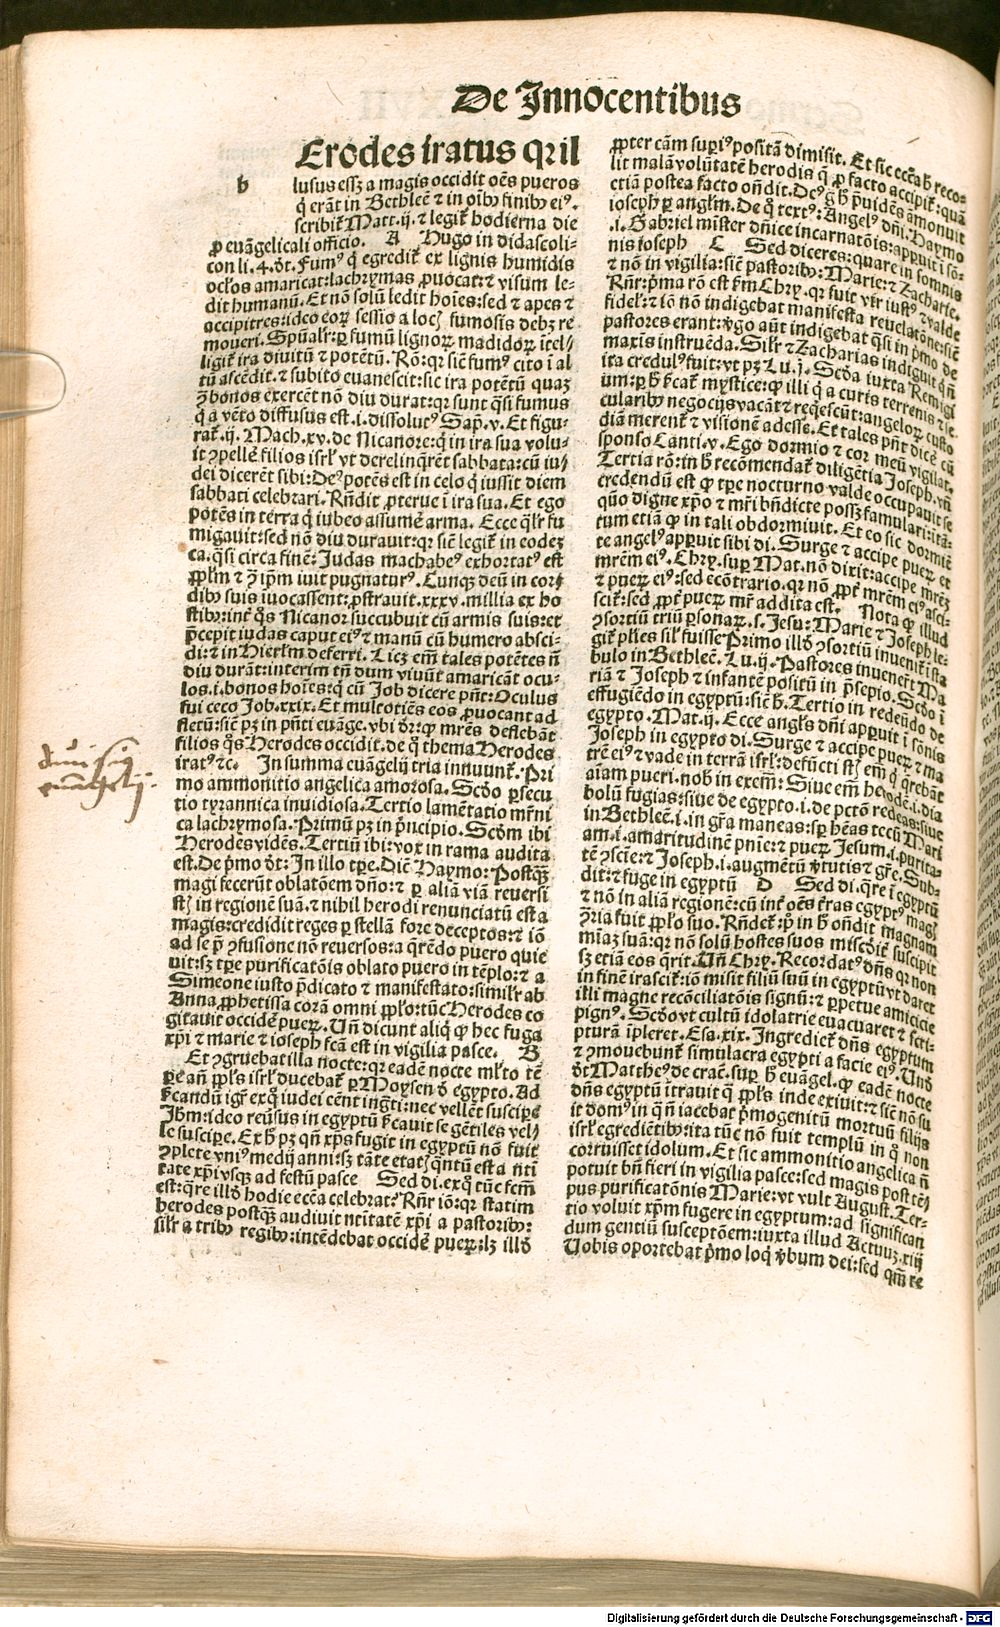 De Innocentibus
Erodes iratus qr il
h
lusus essꝫ a magis occidit oēs pueros
q̇ erāt in Bethleē ⁊ in oībꝰ finibꝰ eiꝰ.
scribit̃ Matt.ij. ⁊ legit̃ hodierna die
ꝓ euāgelicali officio. A Hugo in didascoli-
con li.4.dt. Fumꝰ q̇ egredit̃ ex lignis humidis
oc̃los amaricat:lachrymas ꝓuocat:⁊ visum le-
dit humanū. Et nō solū ledit hoīes:sed ⁊ apes ⁊
accipitres:ideo eoꝝ sessio a locꝭ fumosis debꝫ re
moueri. Spūalr̃:ꝑ fumū lignoꝝ madidoꝝ ītel/
ligit̃ ira diuitū ⁊ potētū. Rō:qr sic̃ fumꝰ cito ī al
tū ascēdit.⁊ subito euanescit:sic ira potētū quaꝫ
ꝯ bonos exercēt nō diu durat:qr sunt q̃si fumus
q̇ a vēto diffusus est.i.dissolutꝰ Sap̃.v. Et figu-
rat̃.ij. Mach.xv.de Nicanore:q̇ in ira sua volu-
it ꝯpelle̾ filios isrl̃ vt derelinq̃rēt sabbata:cū iu/
dei dicerēt sibi:Deꝰ potēs est in celo q̇ iussit diem
sabbati celebrari. Rn̄dit ꝓterue ī ira sua. Et ego
potēs in terra q̇ iubeo assume̾ arma. Ecce qlr̃ fu
migauit:sed nō diu durauit:qr sic̃ legit̃ in eodeꝫ
ca.q̃si circa finē:Judas machabeꝰ exhortatꝰ est
ppl̃m ⁊ ꝯ ip̃m iuit pugnaturꝰ. Cunqꝫ deū in cor/
dibꝰ suis īuocassent:ꝓstrauit.xxxv.millia ex ho
stibꝰ:int̃ q̊s Nicanor succubuit cū armis suis:et
p̄cepit iudas caput eiꝰ ⁊ manū cū humero absci-
di:⁊ in Hierl̃m deferri. Licꝫ em̃ tales potētes ñ
diu durāt:interim tn̄ dum viuūt amaricāt ocu-
los.i.bonos hoīes:q̇ cū Job dicere pn̄t:Oculus
fui ceco Job.xxix. Et multotiēs eos ꝓuocant ad
fletū:sic̃ pꝫ in pn̄ti euāge.vbi dr̃:ꝙ mr̃es deflebāt
filios q̊s Herodes occidit.de q̊ thema Herodes
iratꝰ ⁊c. In summa euāgelij tria innuunt̃. Pri
mo ammonitio angelica amorosa. Scd̃o ꝑsecu
tio tyrannica inuidiosa. Tertio lamētatio mr̃ni
ca lachrymosa. Primū pꝫ in p̄ncipio. Scd̃m ibi
Herodes vidēs. Tertiū ibi:vox in rama audita
est. De p̄mo dt: In illo tp̃e. Dic̃ Haymo: Postqꝫ
magi fecerūt oblatōem dn̄o:⁊ ꝑ aliā viā reuersi
st̃ in regionē suā.⁊ nihil herodi renunciatū est a
magis:credidit reges ꝑ stellā fore deceptos:⁊ iō
ad se p̄ ꝯfusione nō reuersos:a q̃rēdo puero quie
uit:sꝫ tp̃e purificatōis oblato puero in tēplo:⁊ a
Simeone iusto p̄dicato ⁊ manifestato:similr̃ ab
Anna ꝓphetissa corā omni pplo:tūc Herodes co
gitauit occide̾ pueꝝ. Un̄ dicunt aliq̇ ꝙ hec fuga
xp̄i ⁊ marie ⁊ ioseph fc̃a est in vigilia pasce. B
Et ꝯgruebat illa nocte:qr eadē nocte ml̃to tē
pe añ ppls isrl̃ ducebat̃ ꝑ Moysen d̄ egypto. Ad
p̄candū igr̃ exq̊ iudei cēnt ingr̃ti:nec vellēt suscipe
Jhm̄:ideo reūsus in egyptū p̄cauit se gētiles vel/
le suscipe. Ex h̄ pꝫ qn̄ xp̄s fugit in egyptū nō fuit
ꝯplete vniꝰ medij anni:sꝫ tāte etatꝭ q̃ntū est a nti
tate xp̄i vsqꝫ ad festū pasce Sed di.exq̊ tūc fc̃m
est:q̃re illd̄ hodie ecc̃a celebrat̃ Rn̄r iō:qr statim
herodes postqꝫ audiuit ntitatē xp̄i a pastoribꝰ:
silr̃ a tribꝰ regibꝰ:intēdebat occide̾ pueꝝ:lꝫ illd̄
ꝓpter cām supꝰpositā dimisit. Et sic ecc̃a h̄ reco-
lit malā volūtatē herodis q̇ ꝓ facto accipit̃:quā
etiā postea facto on̄dit. Deꝰ g̊ h̄ puidēs amonuit
ioseph ꝑ angl̃m. De q̊ textꝰ: Angelꝰ dn̄i. Haymo
.i. Gabriel mīster dn̄ice incarnatōis:appuit ī sō-
nis ioseph C Sed diceres:quare in somnis
⁊ nō in vigilia:sic̃ pastoribꝰ:Marie:⁊ Zacharie.
Rn̄r:p̄ma rō est fm̄ Chry.qr fuit vir iustꝰ ⁊ valde
fidel̃:⁊ iō nō indigebat manifesta reuelatōe:sic̃
pastores erant:v̄go aūt indigebat q̃si in p̄mo de
maxis instruēda. Silr̃ ⁊ Zacharias indiguit qn̄
ita credulꝰ fuit:vt pꝫ Lu.j. Scd̃a iuxta Remigi
um:ꝑ h̄ fcat̃ mystice:ꝙ illi q̇ a curis terrenis ⁊ se-
cularibꝰ negocijs vacāt ⁊ reqescūt:angeloꝝ custo
diā merent̃ ⁊ visionē adesse. Et tales pn̄t dice̾ cū
sponso Canti.v. Ego dormio ⁊ cor meū vigilat.
Tertia rō:in h̄ recōmendat̃ diligētia Joseph.vn̄
credendū est ꝙ tp̃e nocturno valde occupauit se
quo digne xp̄o ⁊ mr̄i bn̄dicte possꝫ famulari:itā-
tum etiā ꝙ in tali obdormiuit. Et eo sic dormiē
te angelꝰ appuit sibi di. Surge ⁊ accipe pueꝝ et
mr̄em eiꝰ. Chry.sup Mat.nō dixit:accipe mr̄eꝫ
⁊ pueꝝ eiꝰ:sed ecōtrario.qr nō ꝓpt̃ mr̄em eiꝰ asci-
scit̃:sed ꝓpt̃ pueꝝ mr̃ addita est. Nota ꝙ illud
ꝯsortiū triū ꝑsonaꝝ.s. Jesu:Marie ⁊ Joseph le-
git̃ pl̃ies sil̃ fuisse Primo illd̄ ꝯsortiū inuenit̃ ī sta
bulo in Bethleē. Lu.ij. Pastores inuenert̃ Ma
riā ⁊ Joseph ⁊ infantē positū in p̄sepio. Scd̃o ī
effugiēdo in egyptū:sic̃ h̄. Tertio in redeūdo de
egypto. Mat.ij. Ecce angl̃s dn̄i appuit ī sōnis
Joseph in egypto di. Surge ⁊ accipe pueꝝ ⁊ ma
trē eiꝰ ⁊ vade in terrā isrl̃:defūcti st̃ em̃ q̇ q̃rebāt
aīam pueri.nob̃ in exem̃: Siue em̃ herodē.i.dia
bolū fugias:siue de egypto.i.de pctō redeas:siue
in Bethleē.i.in gr̃a maneas:sp̃ hēas tecū Mari
am.i.amaritudinē pn̄ie:⁊ pueꝝ Jesum.i.purita-
tē ꝯscīe:⁊ Joseph.i.augmētū v̄tutis ⁊ gr̃e. Sub-
dit:⁊ fuge in egyptū D Sed di.q̃re ī egyptū
⁊ nō in aliā regionē:cū int̃ oēs t̃ras egyptꝰ magꝭ
ꝯria fuit pplo suo. Rn̄det̃:p̊ in h̄ on̄dit magnam
mīaꝫ suā:qr nō solū hostes suos misc̃dit̃ suscipit
sꝫ etiā eos q̃rit. Un̄ Chry. Recordatꝰ dn̄s qr non
in finē irascit̃:iō misit filiū suū in egyptū vt daret
illi magne recōciliatōis signū:⁊ ꝑpetue amicicie
pignꝰ. Scd̃o vt cultū idolatrie euacuaret ⁊ scri-
pturā īpleret. Esa.xix. Ingrediet̃ dn̄s egyptum
⁊ ꝯmouebunt̃ simulacra egypti a facie eiꝰ. Und̄
dt Mattheꝰ de crac̃.sup h̄ euāgel.ꝙ eadē nocte
dn̄s egyptū ītrauit q̄ ppls inde exiuit:⁊ sic̃ nō fu
it domꝰ in q̄ ñ iacebat p̄mogenitū mortuū filijs
isrl̃ egrediētibꝰ:ita tūc nō fuit templū in q̊ non
corruisset idolum. Et sic ammonitio angelica ñ
potuit bn̄ fieri in vigilia pasce:sed magis post tē/
pus purificatōnis Marie:vt vult August. Ter-
tio voluit xp̄m fugere in egyptum:ad significan
dum gentiū susceptōem:iuxta illud Actuuꝫ.xiij
Uobis oportebat p̄mo loq̇ v̄bum dei:sed qm̄ re
Digitalisierung gefördert durch die Deutsche Forschungsgemeinschaft - DFG